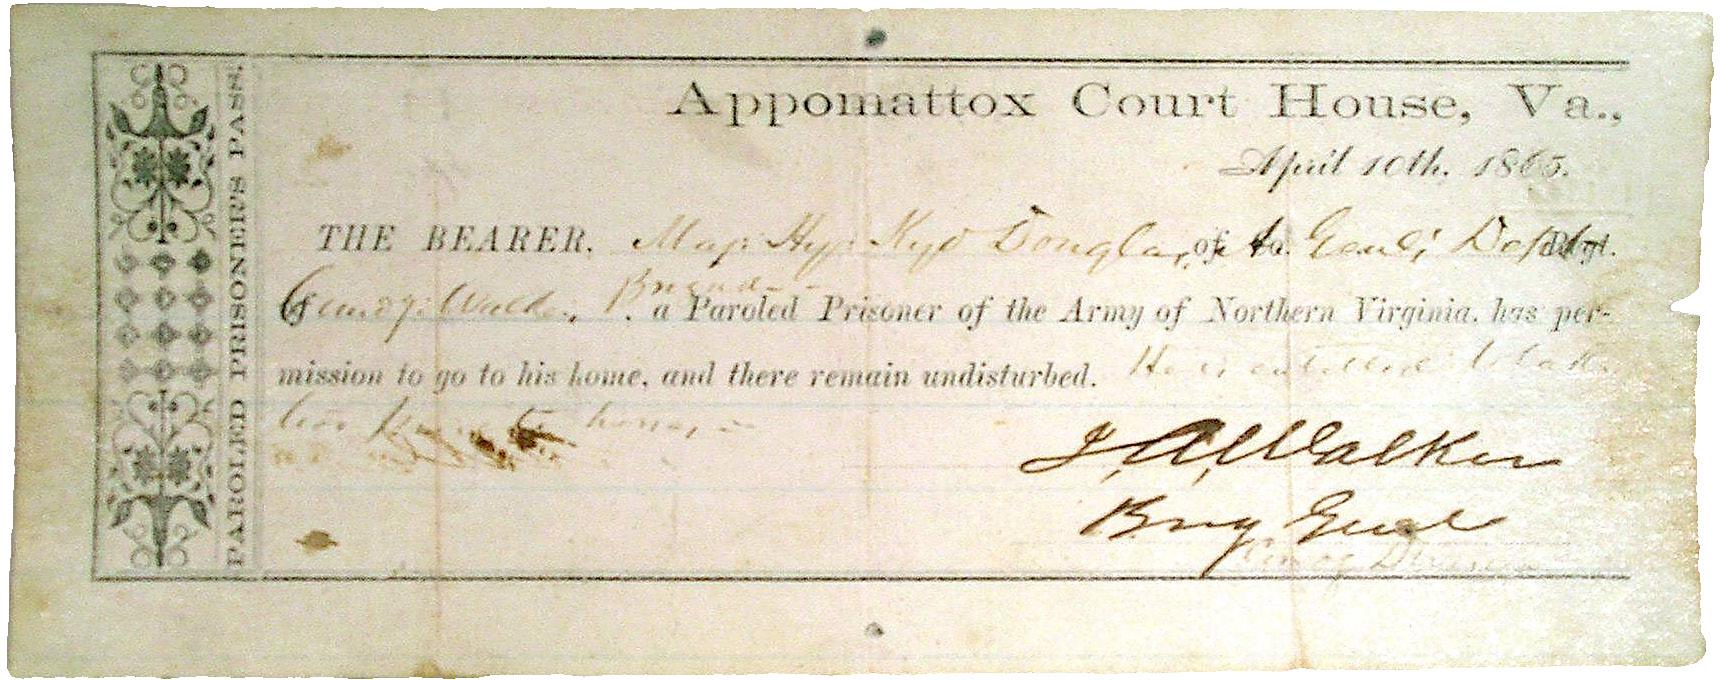 PAROLED PRISONER'S PASS.
Appomattox Court House, Va.,
April 10th, 1865.
THE BEARER, Maj. Hy. Kyd Douglas, of Co. Regt.
of Walker, a Paroled Prisoner of the Army of Northern Virginia, has per-
mission to go to his home, and there remain undisturbed. He is entitled to
two horses
J. A. Walker
Brig Genl
Division